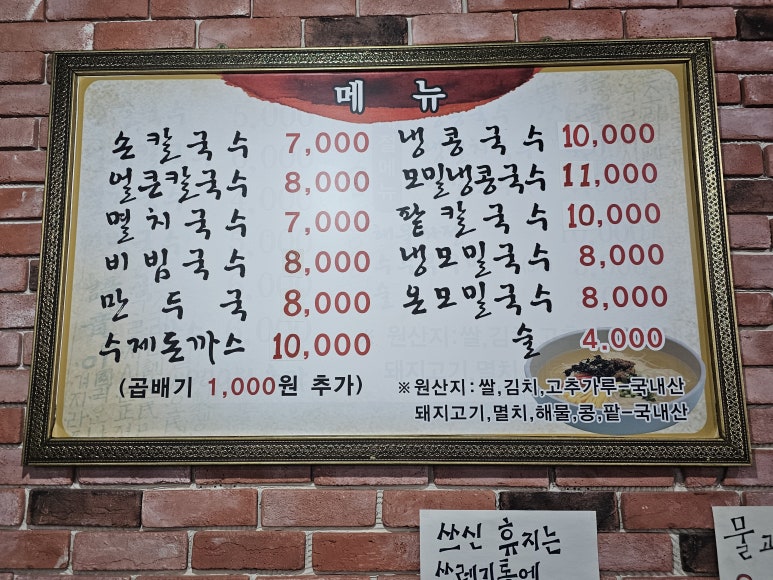 메 뉴
손칼국수 7,000
얼큰칼국수 8,000
멸치국수 7,000
비빔국수 8,000
만두국 8,000
수제돈까스 10,000
(곱배기 1,000원 추가)
냉콩국수 10,000
모밀냉콩국수 11,000
팥칼국수 10,000
냉모밀국수 8,000
온모밀국수 8,000
술 4.000
※원산지:쌀,김치,고추가루-국내산
돼지고기,멸치,해물,콩,팥-국내산
쓰신 휴지는
쓰레기통에
물